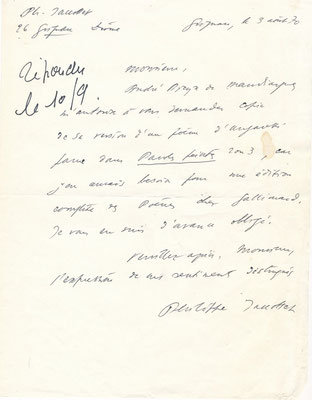 Ph. Jaccottet
26 Grignan Drôme
Grignan, le 3 août 70
répondu
le 10/9.
Monsieur,
André Pieyre de Mandiargues
m'autorise à vous demander copie
de sa version d'un poème d'Ungaretti
parue dans Paroles peintes 2 ou 3, car
j'en aurais besoin pour une édition
complète des Poèmes chez Gallimard.
Je vous en suis d'avance obligé.
Veuillez agréer, Monsieur,
l'expression de mes sentiments distingués
Philippe Jaccottet